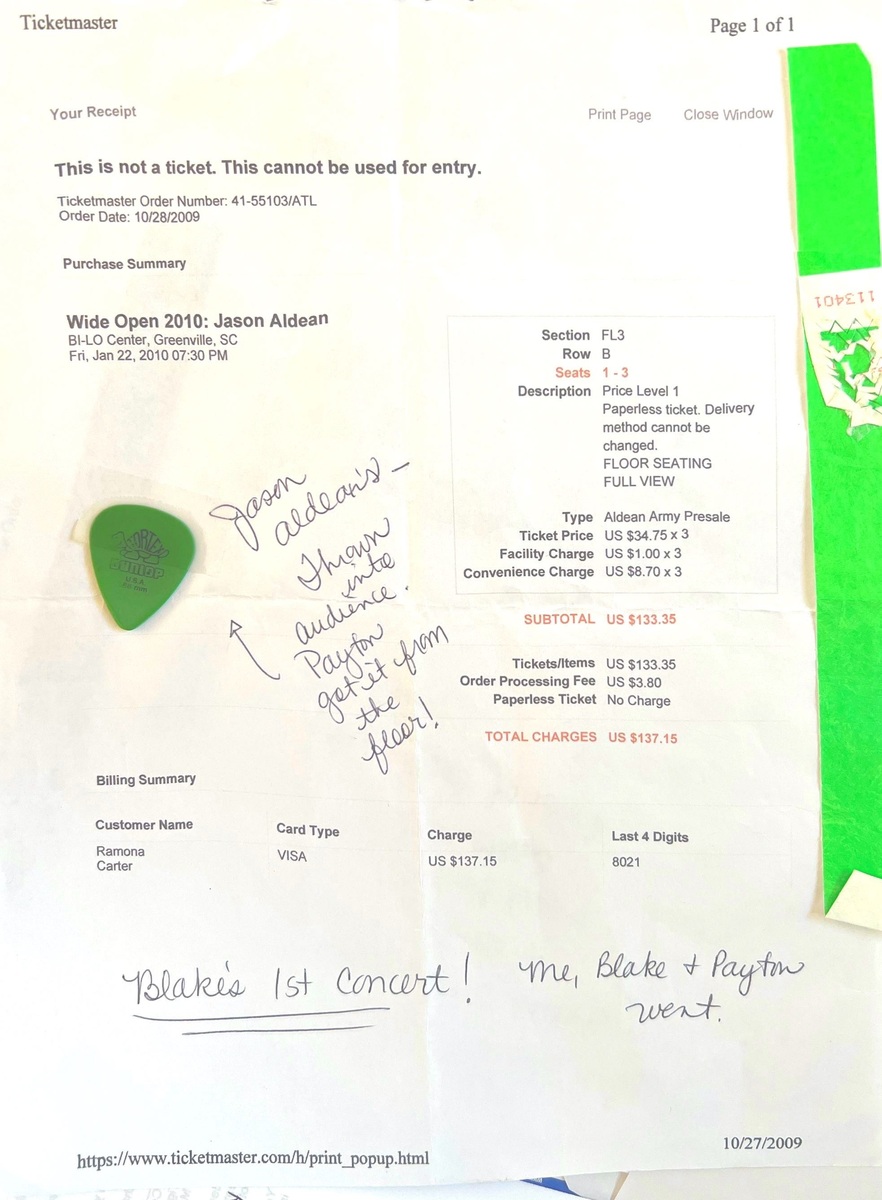 Ticketmaster
Page 1 of 1
Your Receipt
Print Page Close Window
This is not a ticket. This cannot be used for entry.
Ticketmaster Order Number: 41-55103/ATL
Order Date: 10/28/2009
Purchase Summary
Wide Open 2010: Jason Aldean
BI-LO Center, Greenville, SC
Fri, Jan 22, 2010 07:30 PM
Section FL3
Row B
Seats 1 - 3
Description Price Level 1
Paperless ticket. Delivery
method cannot be
changed.
FLOOR SEATING
FULL VIEW
Type Aldean Army Presale
Ticket Price US $34.75 x 3
Facility Charge US $1.00 x 3
Convenience Charge US $8.70 x 3
SUBTOTAL US $133.35
Tickets/Items US $133.35
Order Processing Fee US $3.80
Paperless Ticket No Charge
TOTAL CHARGES US $137.15
113401
Jason
Aldean's -
Thrown
into
audience.
Payton
got it from
the
floor!
TORTEX
DUNLOP
U.S.A.
Billing Summary
Customer Name Card Type Charge Last 4 Digits
Ramona
Carter
VISA US $137.15 8021
Blake's 1st Concert!
Me, Blake + Payton
went.
https://www.ticketmaster.com/h/print_popup.html
10/27/2009